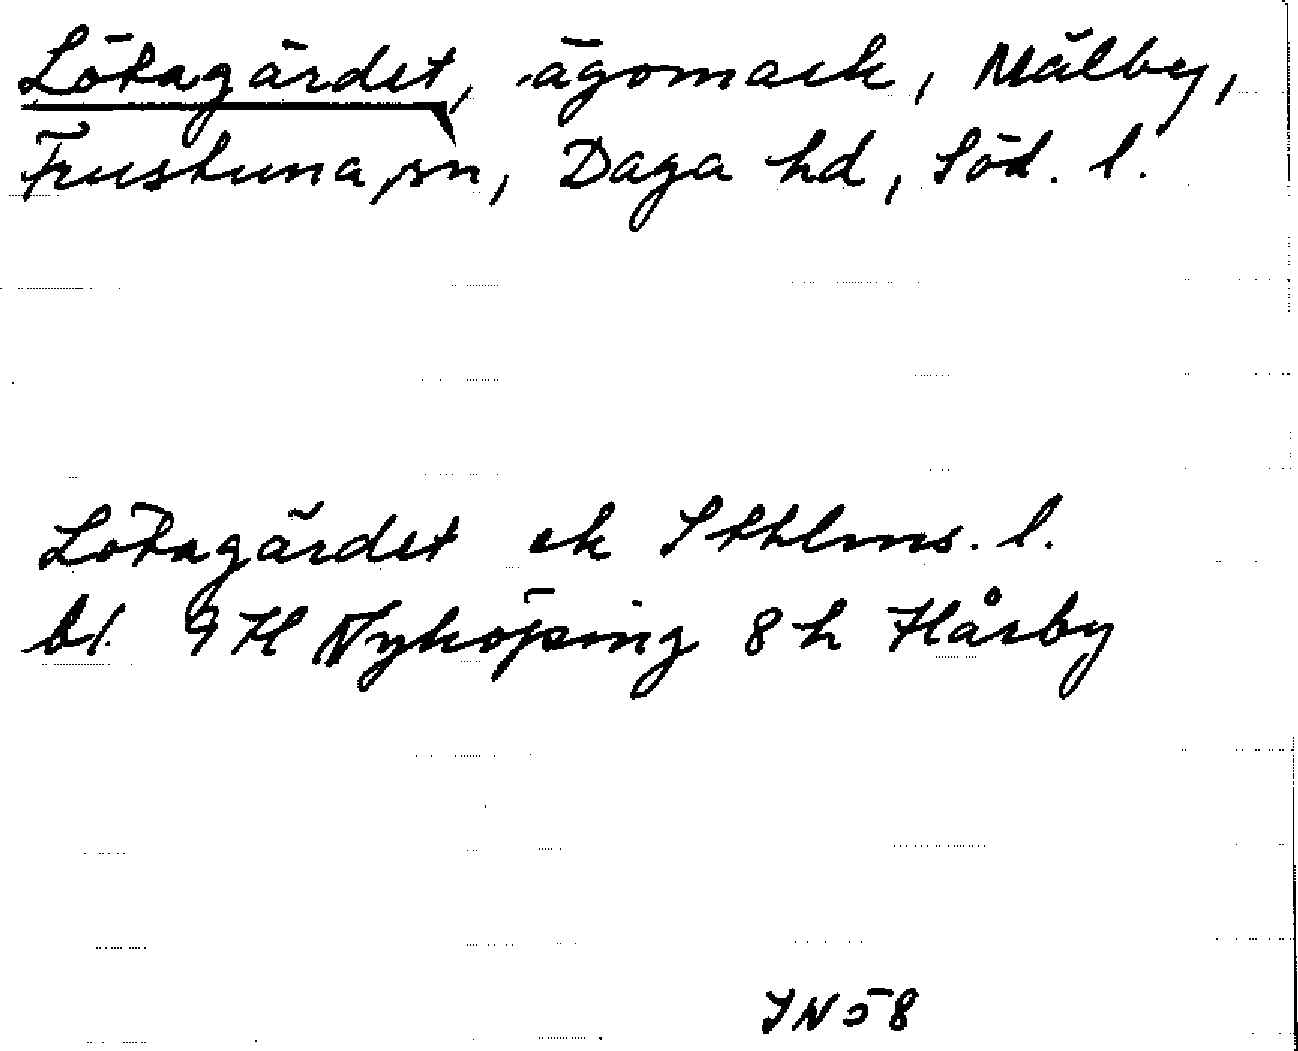 Lötagärdet, ägomark, Mälby,
Frustuna sn, Daga hd, Söd. l.
Lötagärdet ek Sthlms. l.
bl. 9H Nyköping 8h Hårby
IN58